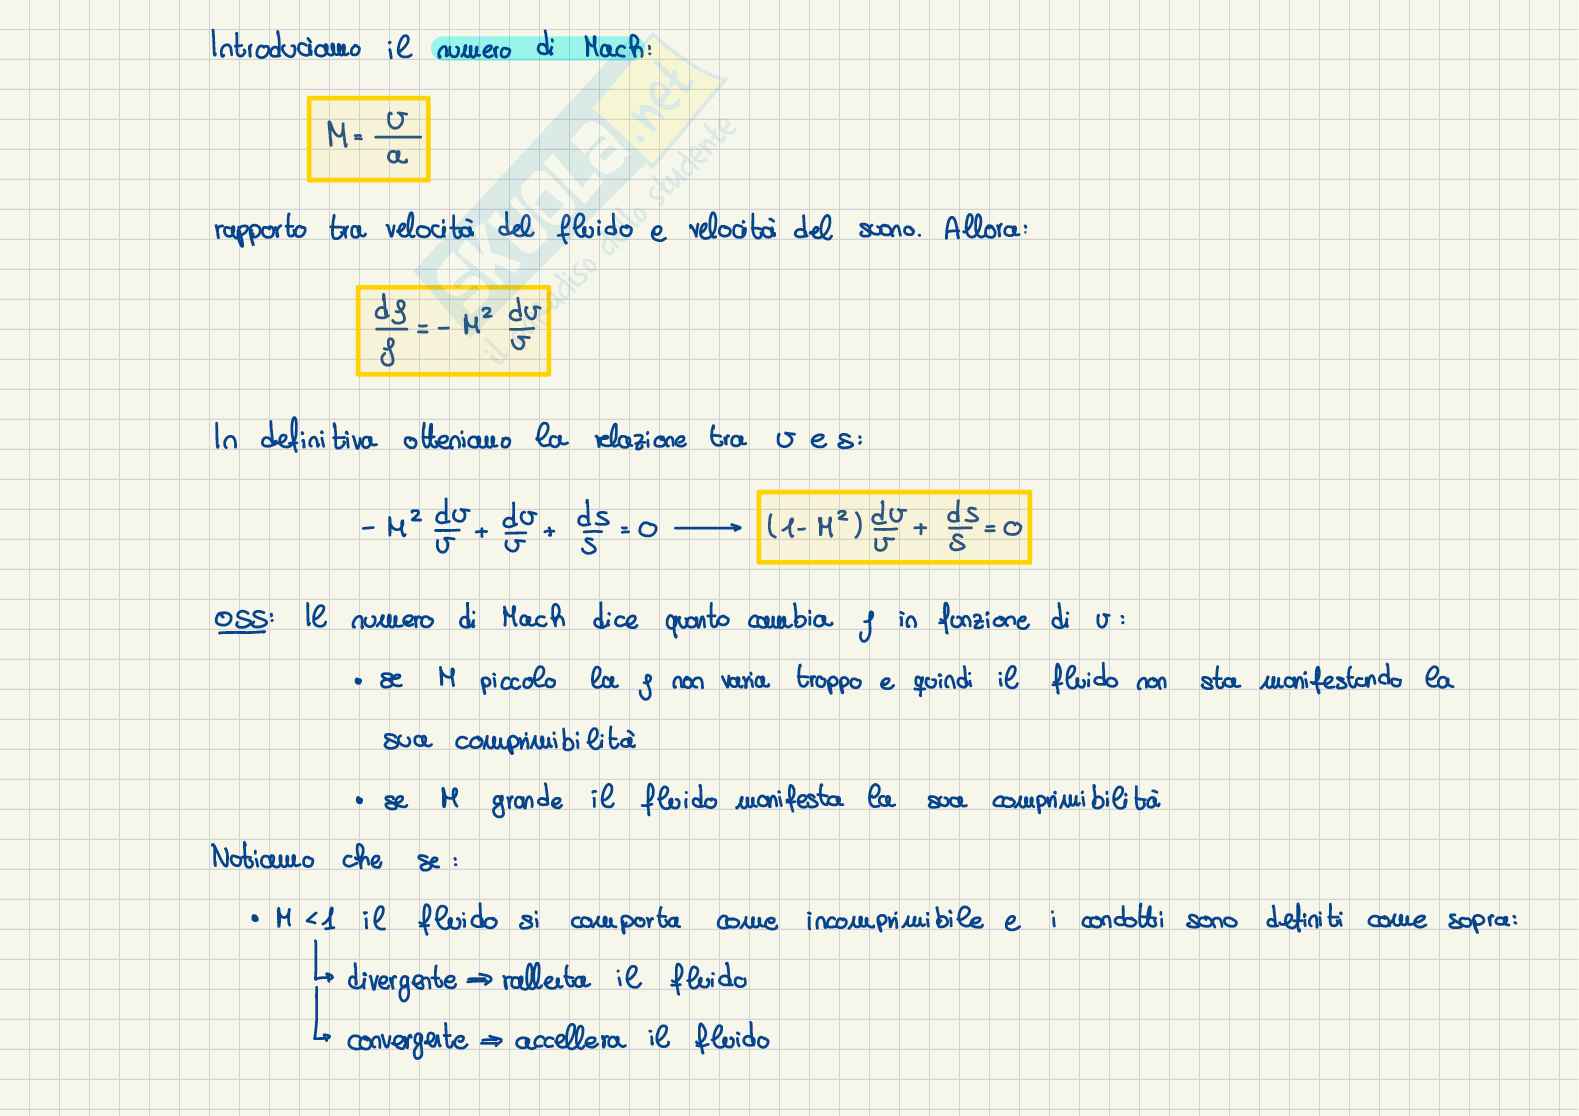 Introduciamo il numero di Mach:
M = v/a
rapporto tra velocità del fluido e velocità del suono. Allora:
dρ/ρ = - M² dv/v
In definitiva otteniamo la relazione tra v e s:
- M² dv/v + dv/v + ds/s = 0 → (1 - M²) dv/v + ds/s = 0
OSS: Il numero di Mach dice quanto cambia ρ in funzione di v:
• se M piccolo la ρ non varia troppo e quindi il fluido non sta manifestando la
sua comprimibilità
• se M grande il fluido manifesta la sua comprimibilità
Notiamo che se:
• M < 1 il fluido si comporta come incomprimibile e i condotti sono definiti come sopra:
↳ divergente ⇒ rallenta il fluido
↳ convergente ⇒ accellera il fluido
SKUOLA.net
il paradiso dello studente